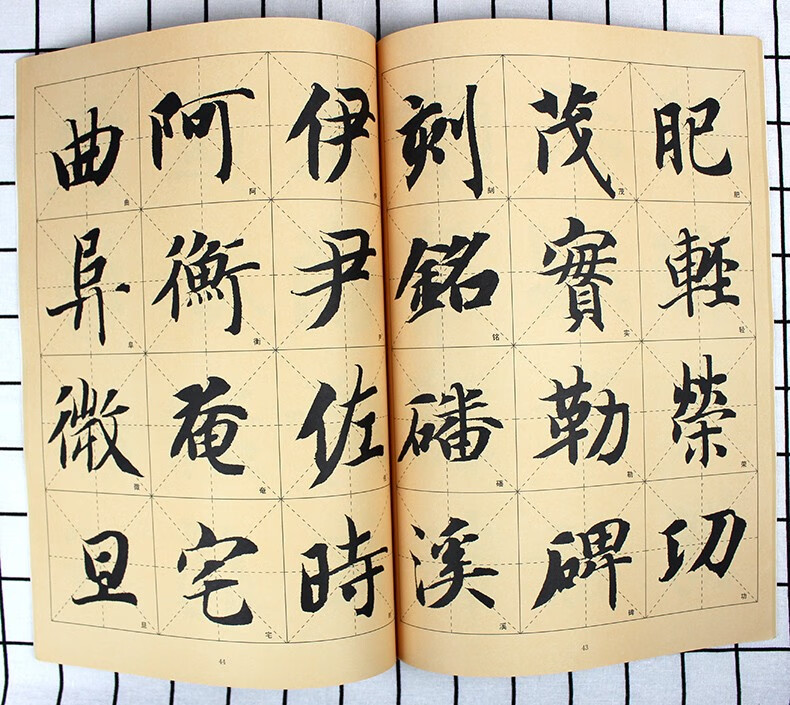 肥輕策功
茂實勒碑
刻銘磻溪
肥轻策功
茂实勒碑
刻铭磻溪
43
伊尹佐時
阿衡奄宅
曲阜微旦
阿衡奄宅
曲阜微旦
44